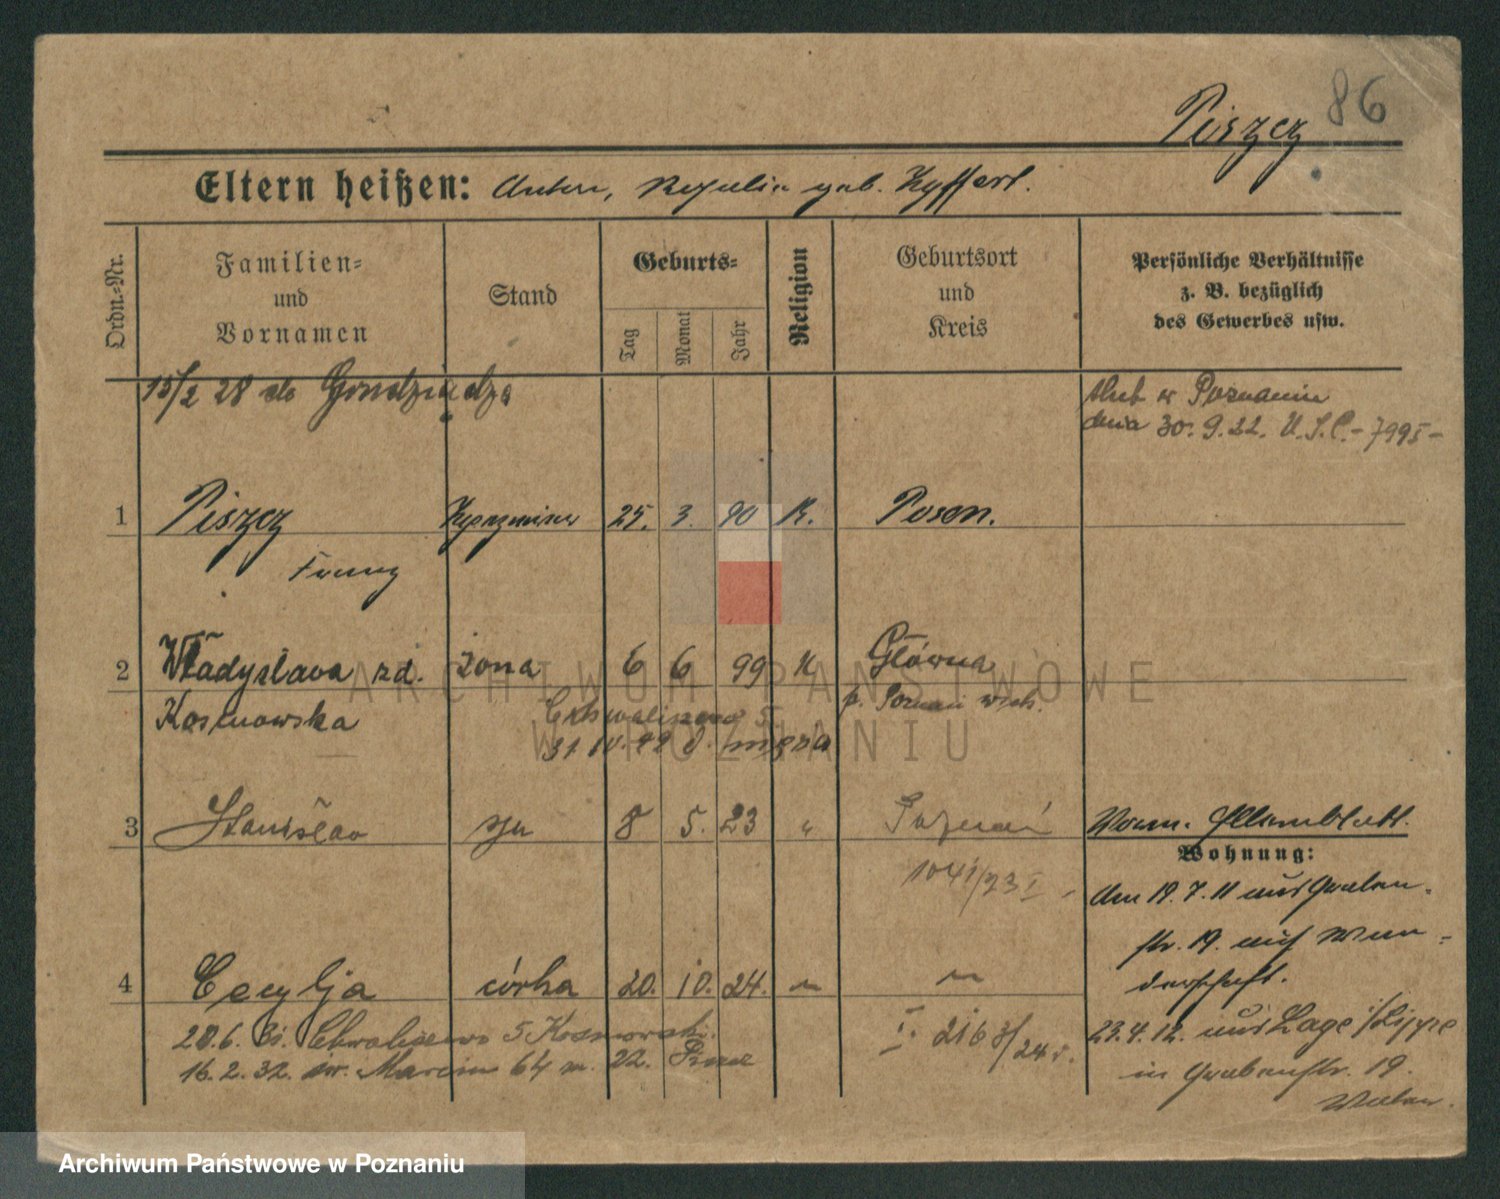 86
Piszcz
Eltern heißen: Anton, geb.
Ordn.=Nr.
Familien=
und
Vornamen
Stand
Geburts=
Tag
Monat
Jahr
Religion
Geburtsort
und
Kreis
Persönliche Verhältnisse
z. B. bezüglich
des Gewerbes usw.
15/2 28 do
ślub w Poznaniu
dnia 30. 9. 22. U. S. C. - 7995 -
1 Piszcz 25. 3. 90 K. Posen.
Franz
2 Władysława zd. żona 6 6 99 K Główna
Kosmowska
p. Poznań wsch.
Chwaliszewo 5
męża
3 Stanisław syn 8 5. 23 " Poznań
1041/23 I
Wohnung:
Am 19. 7. 11 aus Graben-
str. 19. auf Wan-
derschaft.
4 Cecylja córka 20. 10. 24. " "
I. 2163/24
23. 4. 12. aus Lage i/Lippe
in Grabenstr. 19.
28.6. Chwaliszewo 5 Kosmowski
16. 2. 32. św. Marcin 64 m. 22.
ARCHIWUM PAŃSTWOWE
W POZNANIU
Archiwum Państwowe w Poznaniu